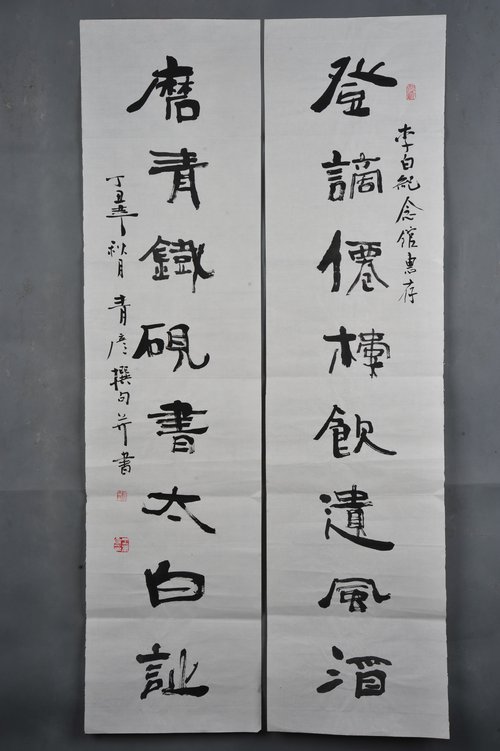 李白紀念館惠存
登謫僊樓飲遺風酒
磨青鐵硯書太白訨
丁丑年秋月青彦撰句并書